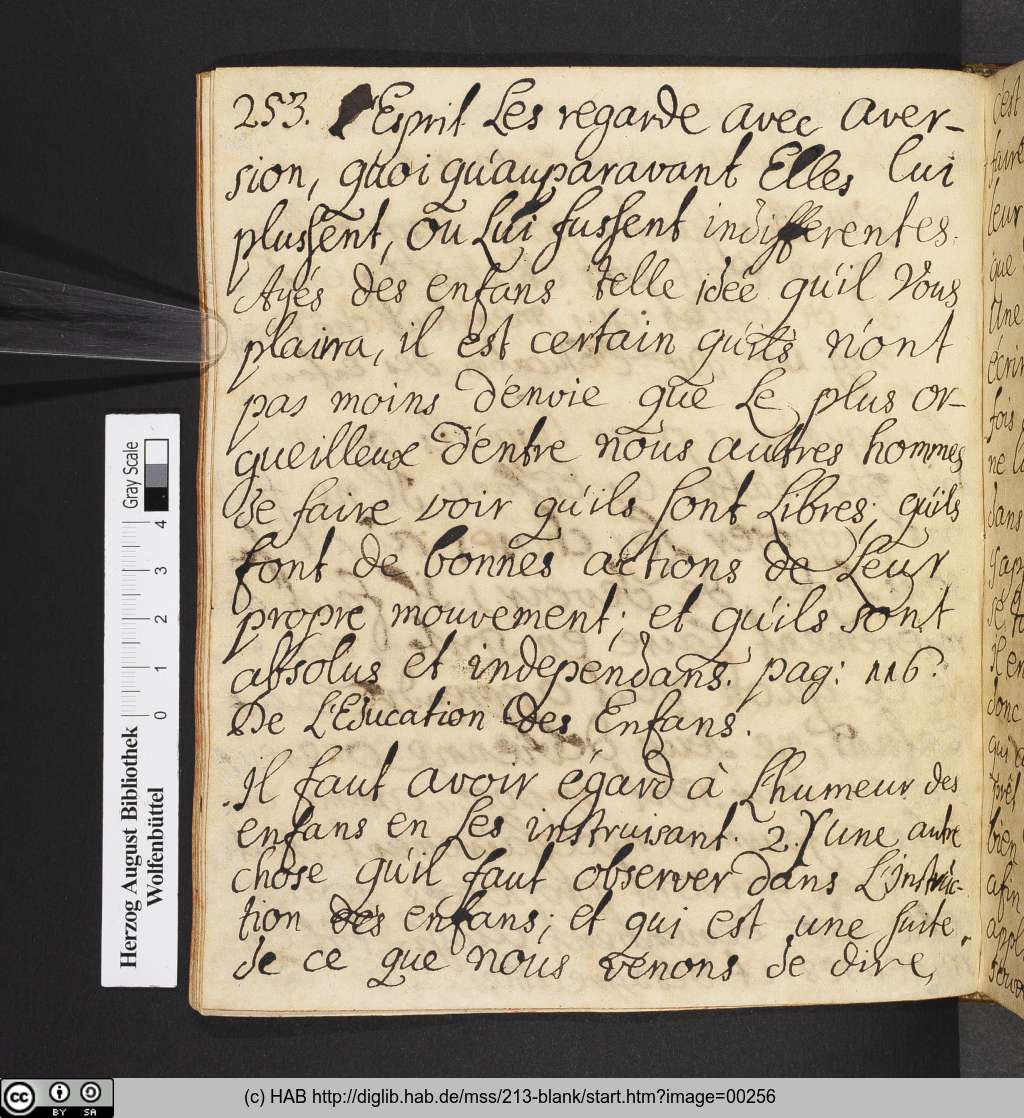 253. l'Esprit Les regarde avec aver-
sion, quoi qu'auparavant Elles lui
plussent, ou Lui fussent indifferentes.
Ayés des enfans telle idée qu'il Vous
plaira, il est certain qu'ils n'ont
pas moins d'envie que Le plus or-
gueilleux d'entre nous autres hommes
de faire voir qu'ils sont Libres, qu'ils
font de bonnes actions de Leur
propre mouvement; et qu'ils sont
absolus et independans. pag: 116.
De L'Education des Enfans.
Il faut avoir égard à L'humeur des
enfans en Les instruisant. 2. Y une autre
chose qu'il faut observer dans L'Instruc-
tion des enfans; et qui est une suite
de ce que nous venons de dire,
c'est
faire
leur
que
Une
écrir
fois
ne
dans
il en
donc
qui
bien
afin
Herzog August Bibliothek
Wolfenbüttel
Gray Scale
0 1 2 3 4
cc BY SA
(c) HAB http://diglib.hab.de/mss/213-blank/start.htm?image=00256